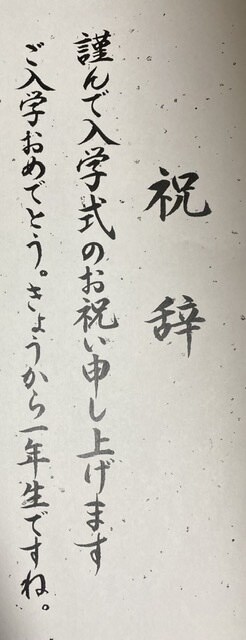 祝辞
謹んで入学式のお祝い申し上げます
ご入学おめでとう。きょうから一年生ですね。